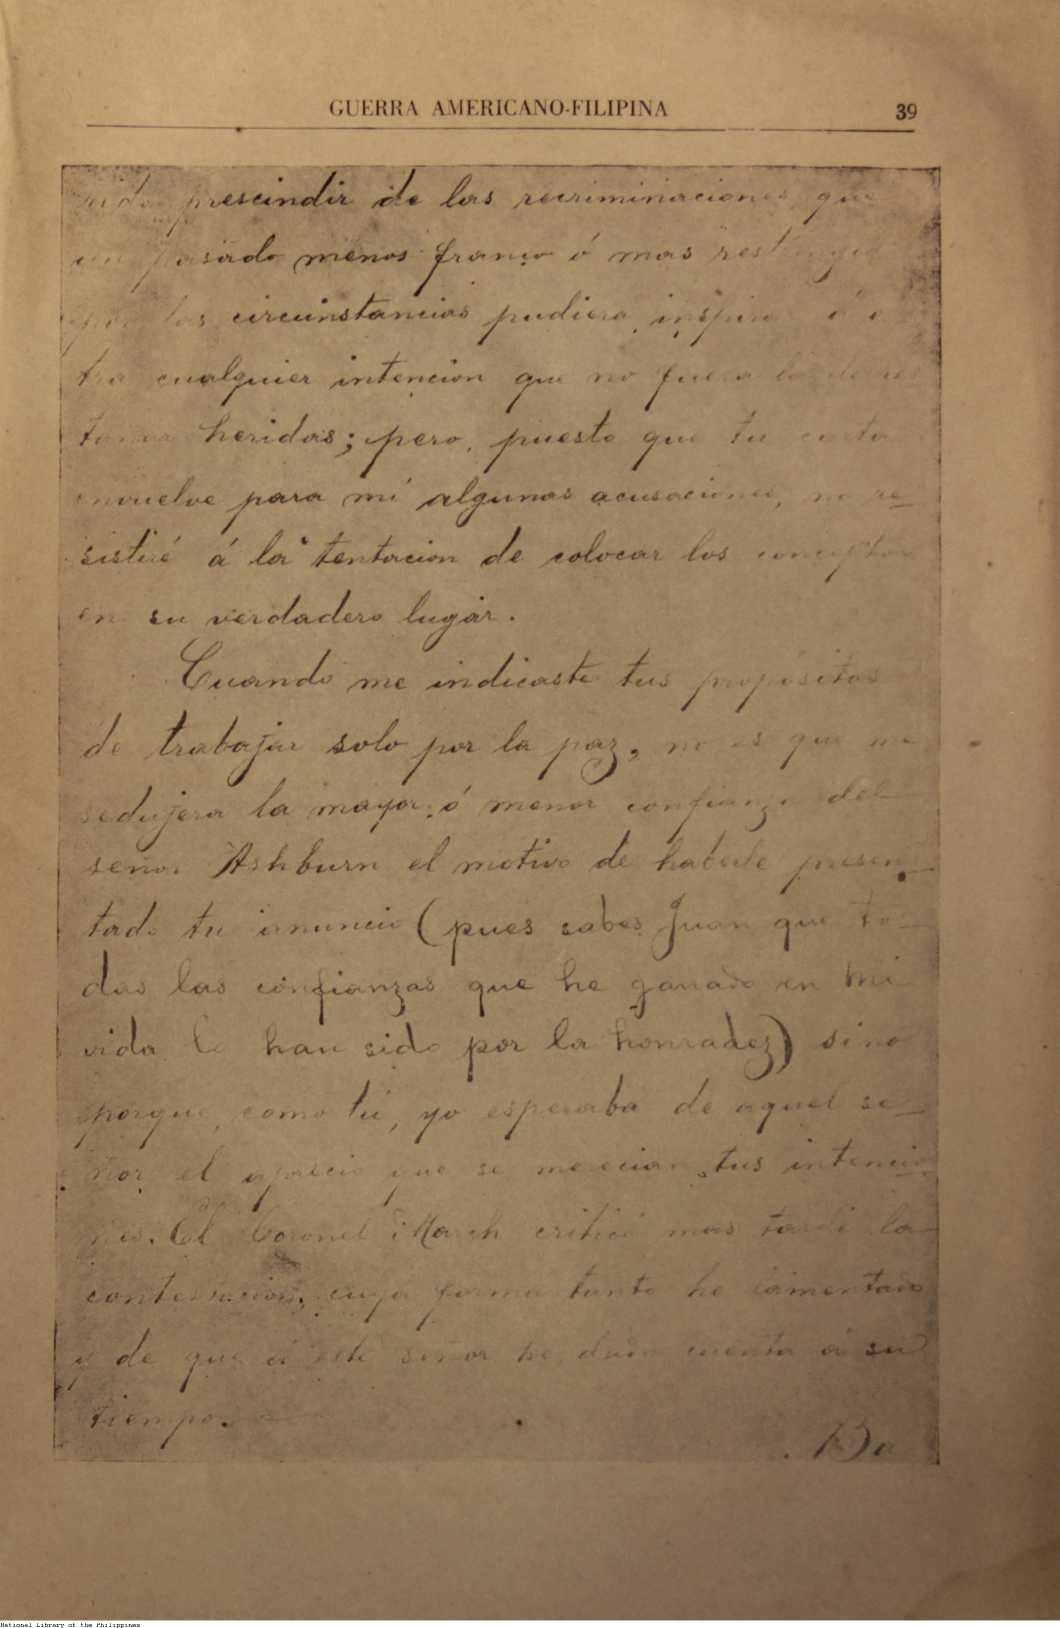 GUERRA AMERICANO-FILIPINA
39
rido prescindir de las recriminaciones que
un pasado menos franco ó mas
por las circunstancias pudiera inspirar ó o
tra cualquier intencion que no fuera la de res
tañar heridas; pero, puesto que tu carta
envuelve para mí algunas acusaciones, no re-
sistiré á la tentacion de colocar los conceptos
en su verdadero lugar.
Cuando me indicaste tus propósitos
de trabajar solo por la paz, no es que me
sedujera la mayor ó menor confianza del
señor Ashburn el motivo de haberle presen-
tado tu anuncio (pues sabes Juan que to-
das las confianzas que he ganado en mi
vida lo han sido por la honradez) sino
porque, como tú, yo esperaba de aquel se-
ñor el aprecio que se merecian tus intencio-
nes. El Coronel March criticó mas tarde la
contestacion, cuya forma tanto he lamentado
y de que á este señor he dado cuenta á su
tiempo.
National Library of the Philippines